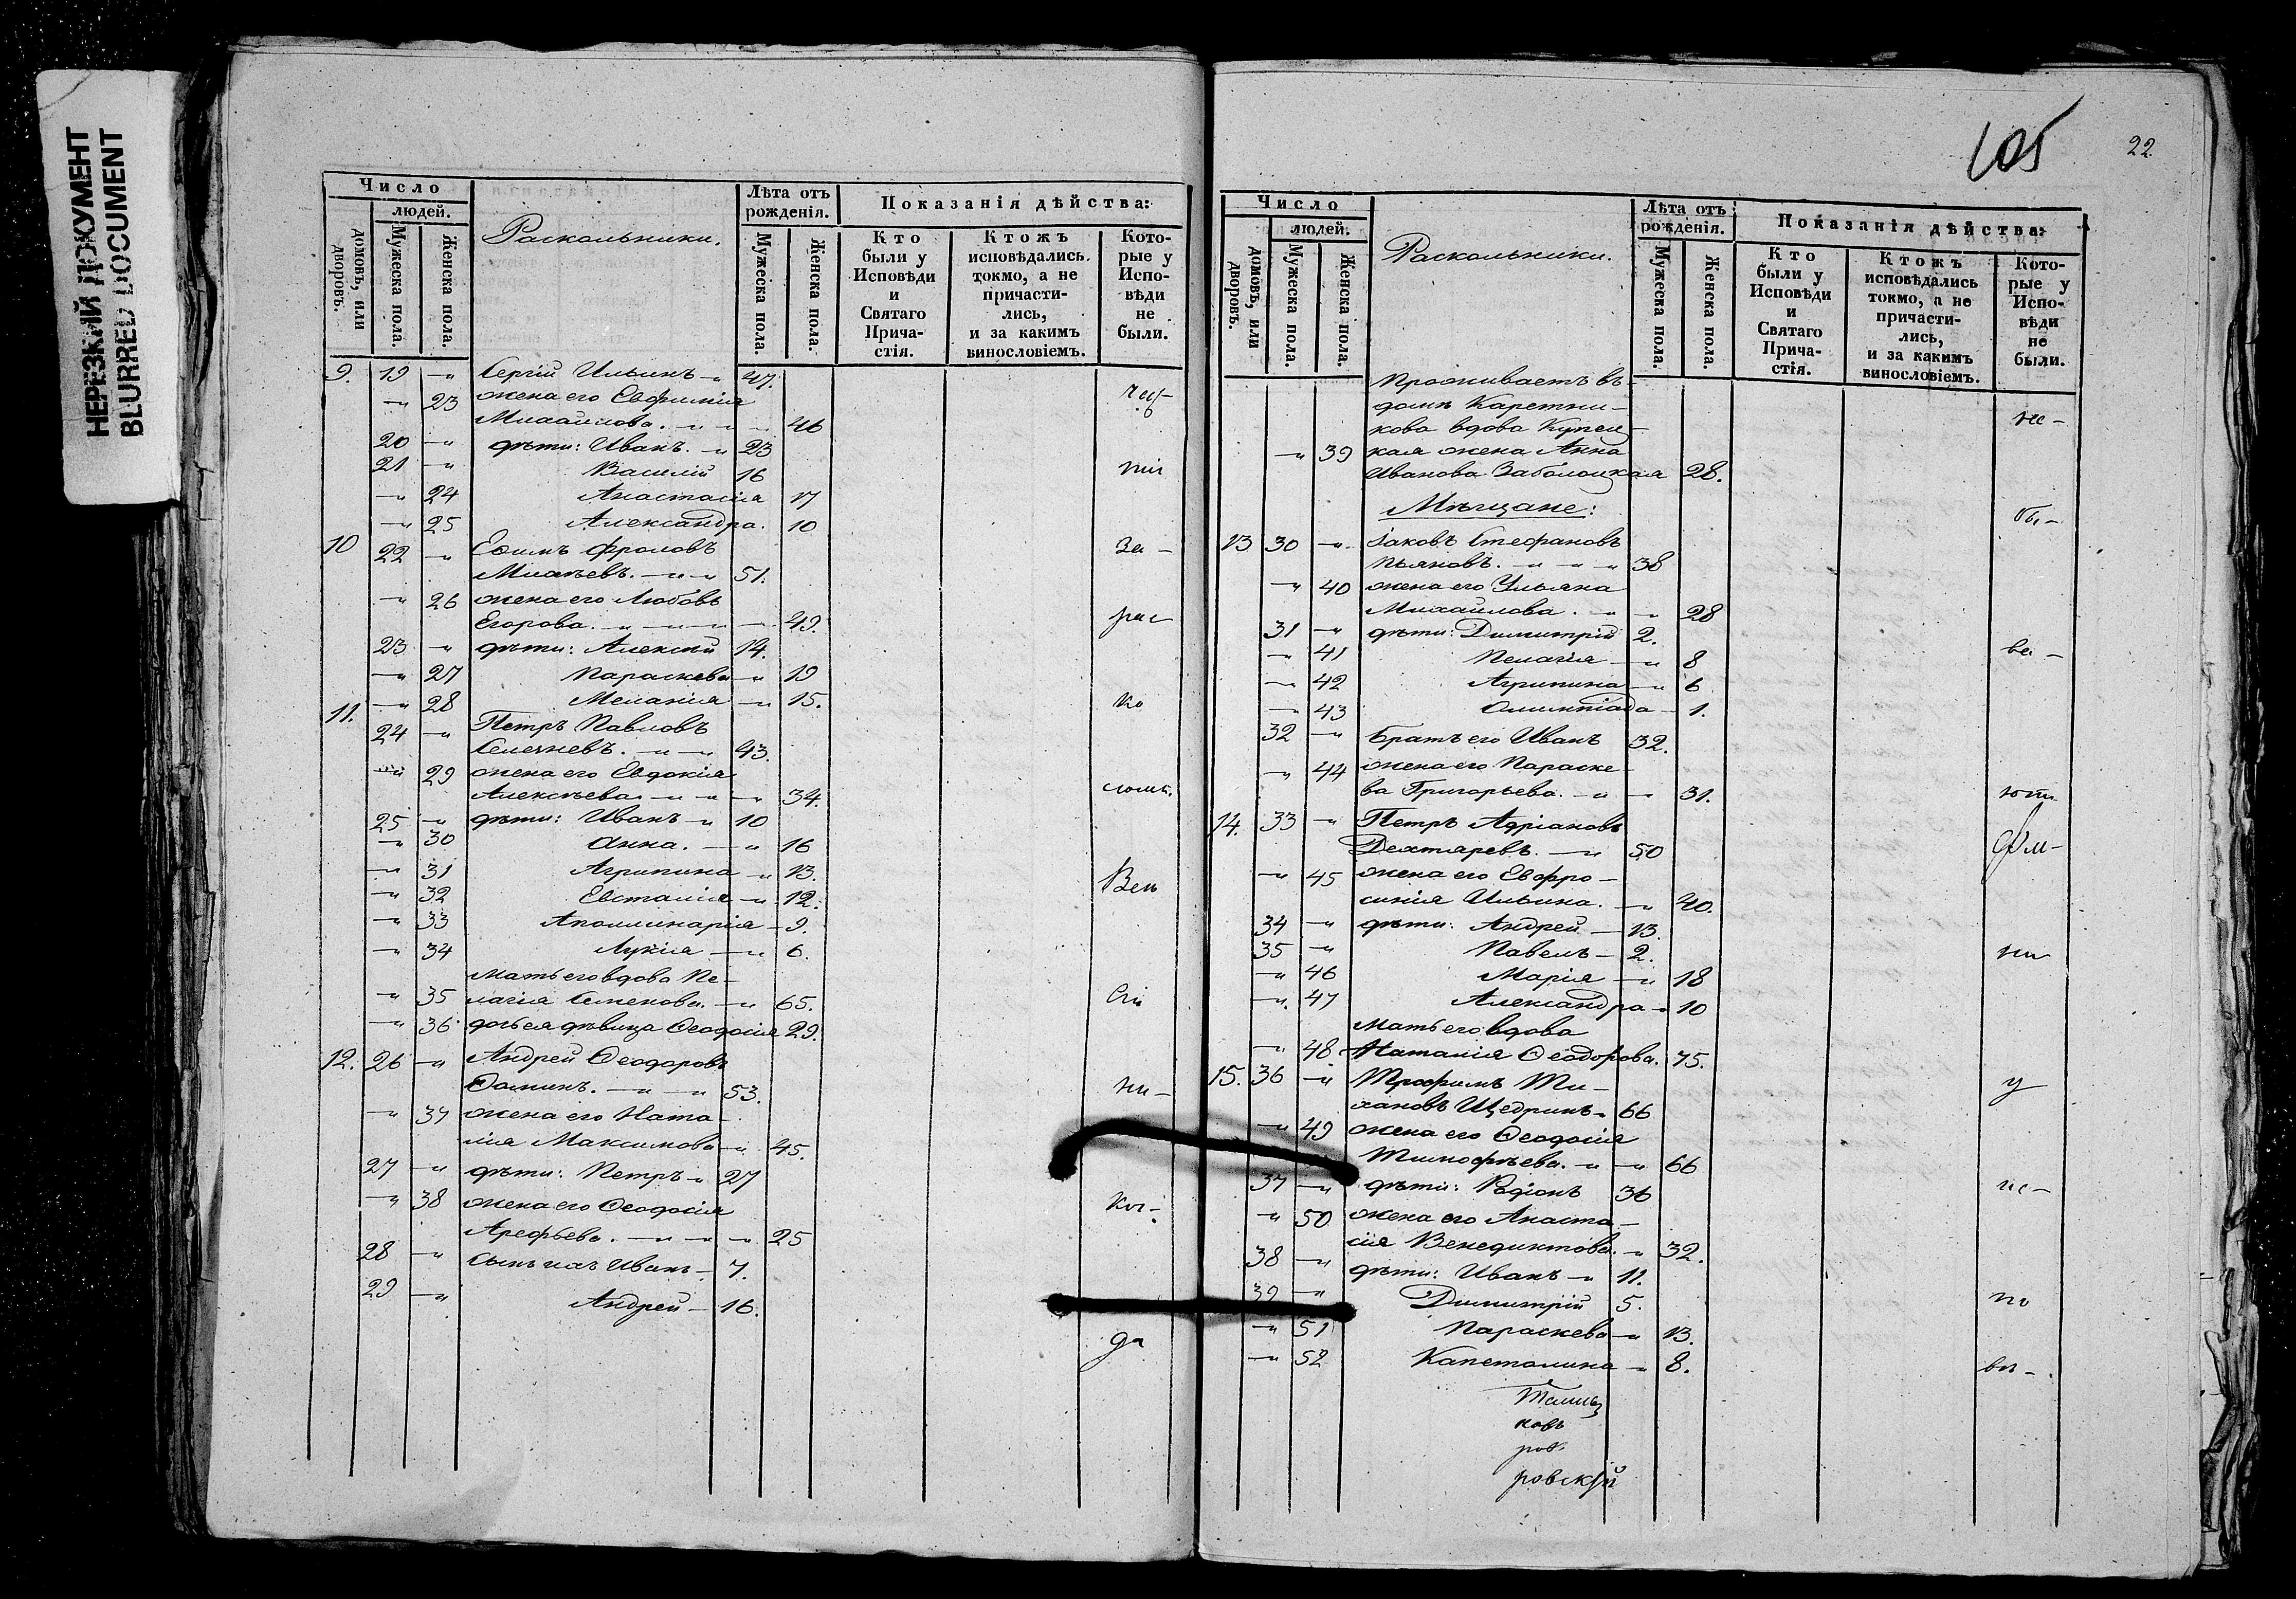 НЕРЕЗКИЙ ДОКУМЕНТ
BLURRED DOCUMENT
Число
людей.
домовъ, или дворовъ.
Мужеска пола.
Женска пола.
Раскольники.
Лѣта отъ рожденія.
Мужеска пола.
Женска пола.
Показанія дѣйства:
Кто были у Исповѣди и Святаго Причастія.
Ктожъ исповѣдались токмо, а не причастились, и за какимъ винословіемъ.
Которые у Исповѣди не были.
9. 19 -" Сергій Ильинъ -" 47.
-" 23 жена его Евфимія
Михайлова. -" -" 46
20 -" дѣти: Иванъ. -" 23
21 -" Василій 16
-" 24 Анастасія 17
-" 25 Александра. 10
10 22 -" Ефимъ Фроловъ
Михѣевъ. -" -" 51.
-" 26 жена его Любовь
Егорова. -" -" -" 49.
23 -" дѣти: Алексѣй 14.
-" 27 Параскева -" 19
-" 28 Меланія -" 15.
11. 24 -" Петръ Павловъ
-" -" 43.
-" 29 жена его Евдокія
Алексѣева -" -" -" 34.
25 -" дѣти: Иванъ -" 10
-" 30 Анна. -" 16
-" 31 Агрипина -" 13.
-" 32 Евстолія -" 12.
-" 33 Аполлинарія - 9.
-" 34 Лукія -" 6.
Мать его вдова Пе-
-" 35 лагія Семенова. -" 65.
-" 36 дочь ея дѣвица Ѳеодосія 29.
12. 26 -" Андрей Ѳеодоровъ
Ѳоминъ. -" -" 53.
-" 37 жена его Ната-
лія Максимова -" 45.
27 -" дѣти: Петръ -" 27
-" 38 жена его Ѳеодосія
Арефьева. -" -" -" 25
28 -" сынъ ихъ Иванъ - 7.
29 -" Андрей - 16.
за -
рас
ко
ни -
да
105
22
Число
людей.
домовъ, или дворовъ.
Мужеска пола.
Женска пола.
Раскольники.
Лѣта отъ рожденія.
Мужеска пола.
Женска пола.
Показанія дѣйства:
Кто были у Исповѣди и Святаго Причастія.
Ктожъ исповѣдались токмо, а не причастились, и за какимъ винословіемъ.
Которые у Исповѣди не были.
Проживаетъ въ
домѣ Каретни-
кова вдова Купец-
-" 39 кая жена Анна
Иванова Заболоцкая 28.
Мѣщане:
13 30 -" Іаковъ Стефановъ
Пьяновъ. -" -" -" 38
-" 40 жена его Ульяна
Михайлова. -" -" 28
31 -" дѣти: Димитрій 2.
-" 41 Пелагія -" 8
-" 42 Агрипина -" 6
-" 43 Олимпіада - 1.
32 -" Братъ его Иванъ 32.
-" 44 жена его Параске-
ва Григорьева. -" -" 31.
14. 33 -" Петръ Адріановъ
Дехтяревъ. -" 50
-" 45 жена его Евфро-
синія Ильина. -" 40.
34 -" дѣти: Андрей - 13.
35 -" Павелъ - 2.
-" 46 Марія -" 18
-" 47 Александра -" 10
Мать его вдова
-" 48 Наталія Ѳеодорова. 75.
15. 36 -" Трофимъ Ти-
хановъ Щедринъ -" 66
-" 49 жена его Ѳеодосія
Тимофѣева. -" -" 66
37 -" дѣти: Родіонъ 36
-" 50 жена его Анаста-
сія Венедиктова. -" 32.
38 -" дѣти: Иванъ -" 11.
39 -" Димитрій 5.
-" 51 Параскева -" 13.
-" 52 Капеталина -" 8.
не -
бы -
ва -
ни
у
ис -
по
вѣ -
ковъ
ровскій